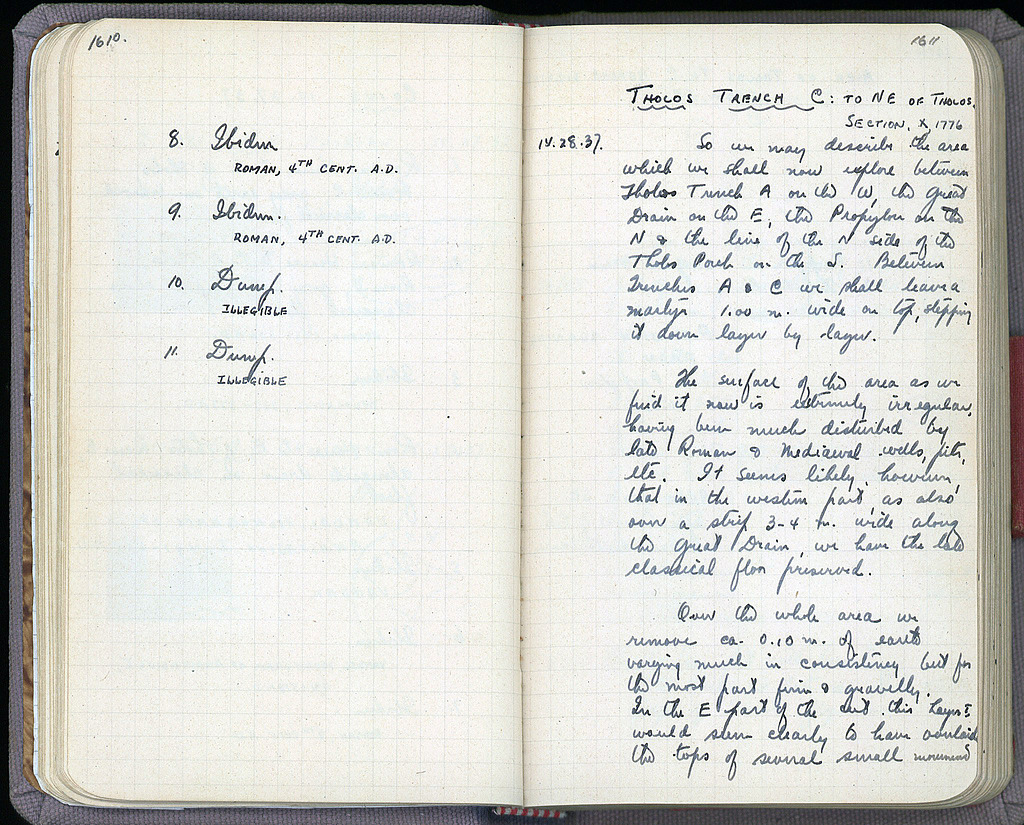 1610.
8. Ibidem
ROMAN, 4TH CENT. A.D.
9. Ibidem.
ROMAN, 4TH CENT. A.D.
10. Dump.
ILLEGIBLE
11. Dump.
ILLEGIBLE
1611
THOLOS TRENCH C: TO NE OF THOLOS.
SECTION, X, 1776
IV.28.37. So we may describe the area
which we shall now explore between
Tholos Trench A on the W, the Great
Drain on the E, the Propylon on the
N & the line of the N side of the
Tholos Porch on the S. Between
Trenches A & C we shall leave a
martyr 1.00 m. wide on top, stepping
it down layer by layer.
The surface of the area as we
find it now is extremely irregular,
having been much disturbed by
late Roman & Mediaeval wells, pits,
etc. It seems likely, however,
that in the western part, as also
over a strip 3-4 m. wide along
the Great Drain, we have the late
classical floor preserved.
Over the whole area we
remove ca. 0.10 m. of earth
varying much in consistency but for
the most part firm & gravelly.
In the E part of the cut this Layer I
would seem clearly to have overlaid
the tops of several small